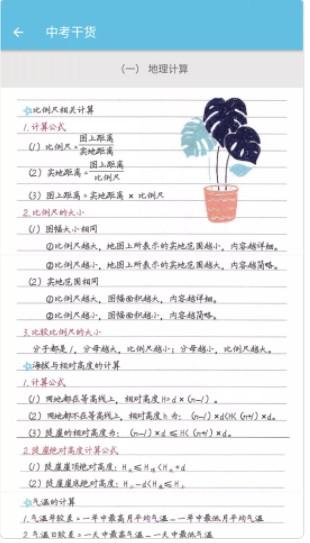 中考干货
（一） 地理计算
比例尺相关计算
1.计算公式
(1) 比例尺=图上距离/实地距离
(2) 实地距离=图上距离/比例尺
(3) 图上距离=实地距离×比例尺
2.比例尺的大小
(1) 图幅大小相同
①比例尺越大，地图上所表示的实地范围越小，内容越详细。
②比例尺越小，地图上所表示的实地范围越大，内容越简略。
(2) 实地范围相同
①比例尺越大，图幅面积越大，内容越详细。
②比例尺越小，图幅面积越小，内容越简略。
3.比较比例尺的大小
分子都是1，分母越大，比例尺越小；分母越小，比例尺越大。
海拔与相对高度的计算
1.计算公式
(1) 两地都在等高线上，相对高度H=d×(n-1)。
(2) 两地都不在等高线上，相对高度h为：(n-1)×d<H<(n+1)×d。
(3) 陡崖的相对高度为：(n-1)×d≤H<(n+1)×d。
2.陡崖绝对高度计算公式
(1) 陡崖崖顶绝对高度：H大≤H顶<H大+d
(2) 陡崖崖底绝对高度：H小-d<H底≤H小
气温的计算
1.气温年较差=一年中最高月平均气温-一年中最低月平均气温
2.气温日较差=一天中最高气温-一天中最低气温